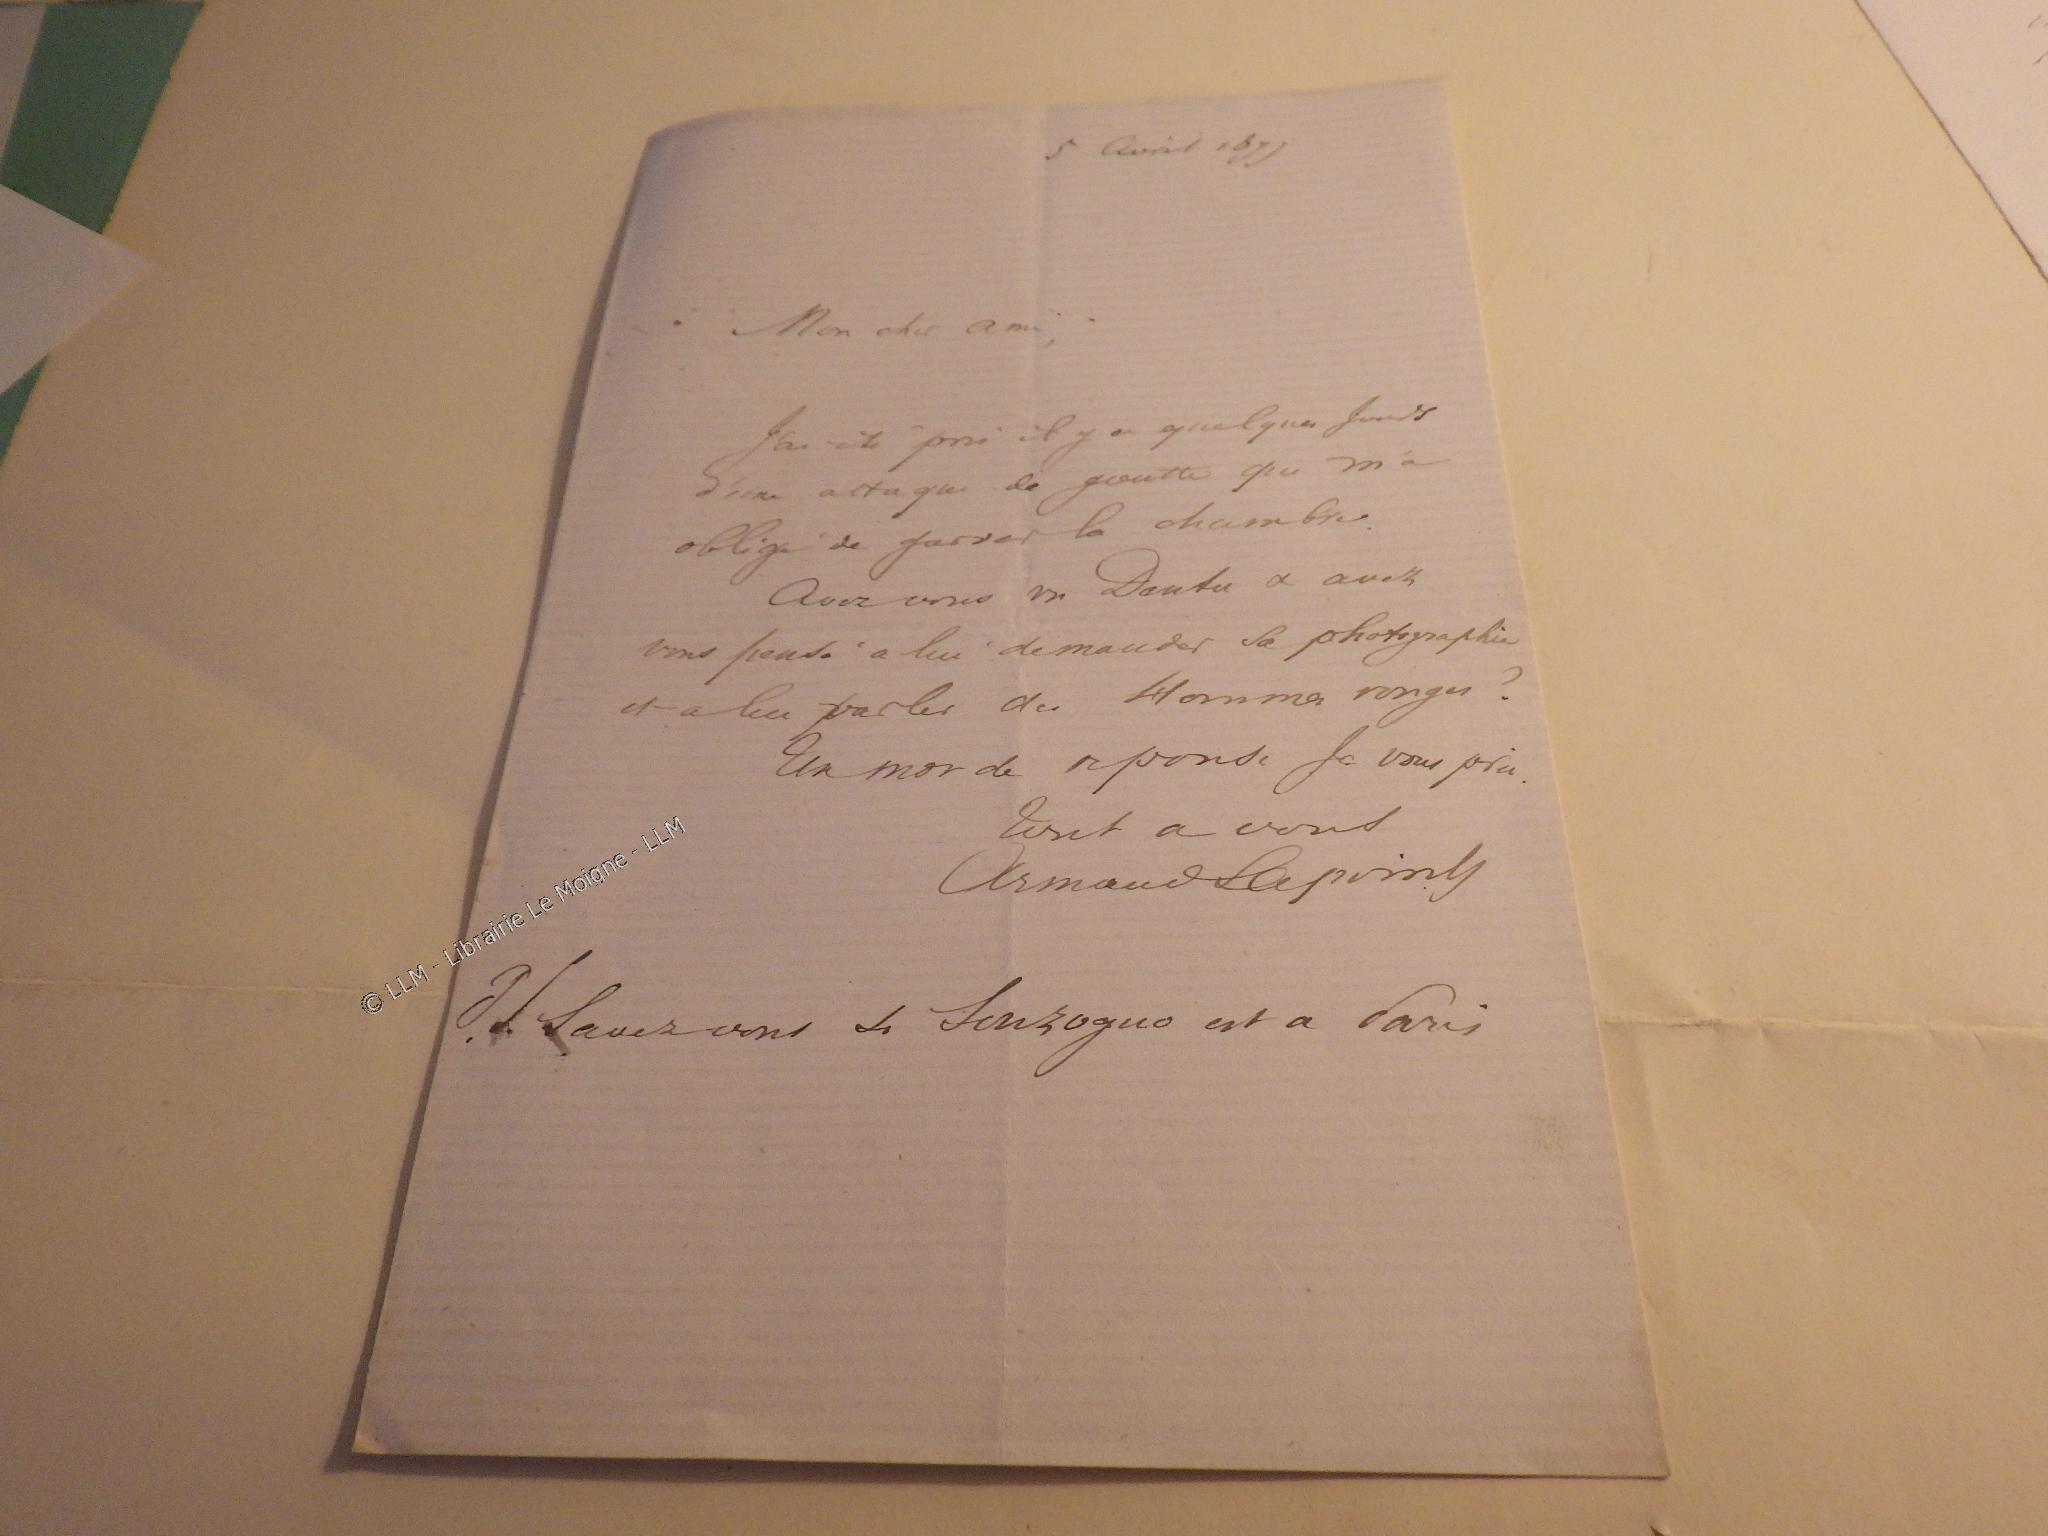 5 Avril 1877
Mon cher ami,
J'ai été pris il y a quelques jours
d'une attaque de goutte qui m'a
obligé de garder la chambre.
Avez vous vu Dentu & avez
vous pensé à lui demander sa photographie
et à lui parler des Hommes rouges ?
Un mot de réponse je vous prie.
Tout a vous
Armand Lapointe
P.S. Savez vous si Sonzogno est a Paris
© LLM - Librairie Le Moigne - LLM